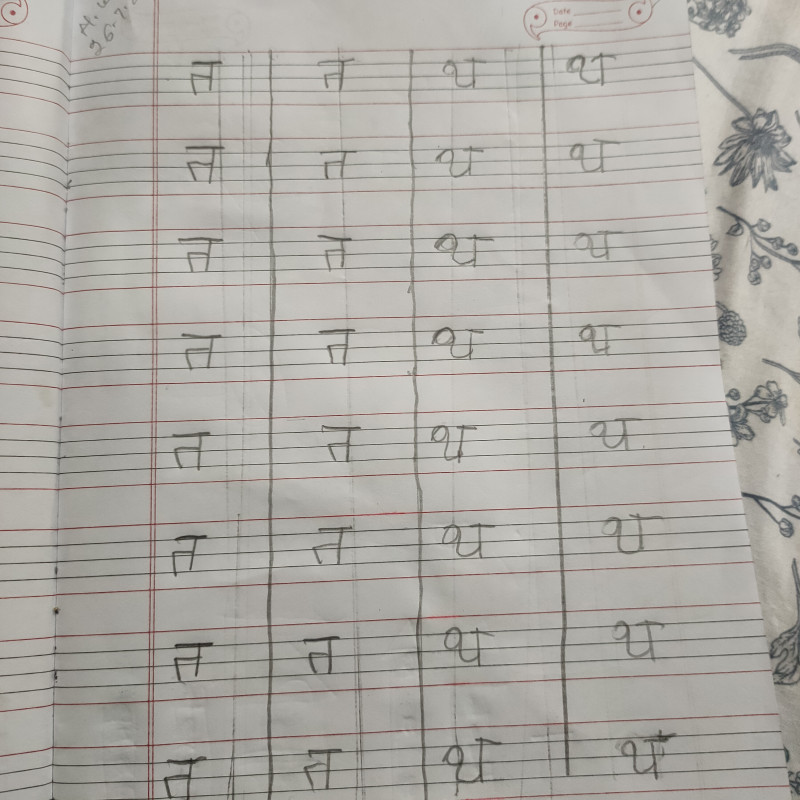 Date
Page
त त थ थ
त त थ थ
त त थ थ
त त थ थ
त त थ थ
त त थ थ
त त थ थ
त त थ थ